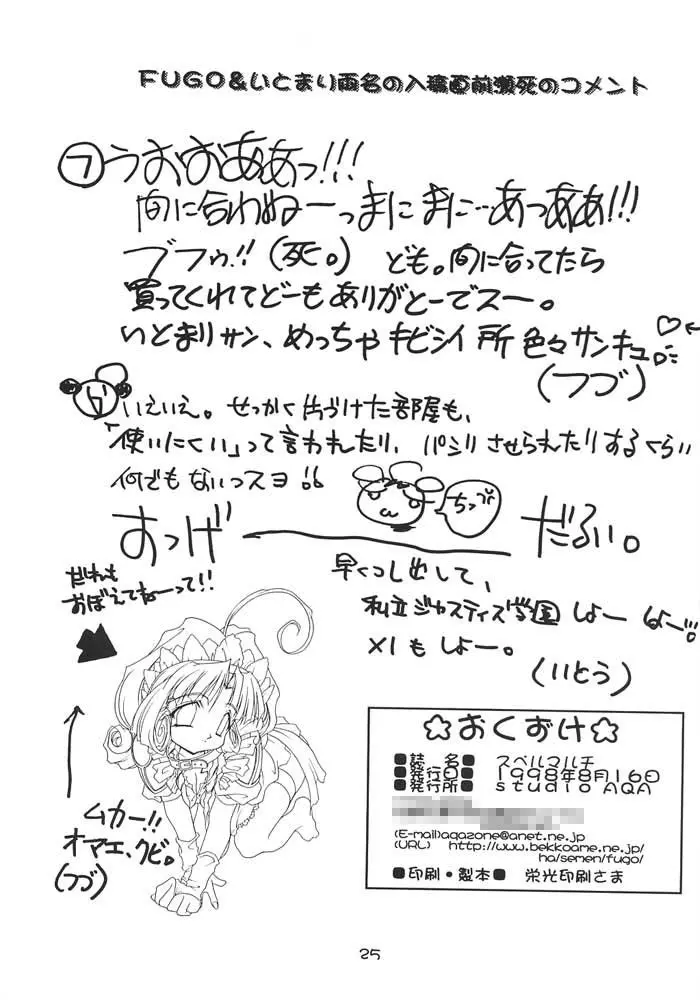 FUGO&いとまり両名の入稿直前瀕死のコメント
フ うおおああっ!!!
間に合わねーっまにまに…あっああ!!!
ブフゥ!!(死。) ども。間に合ってたら
買ってくれてどーもありがとーでスー。
いとまりサン、めっちゃキビシイ所色々サンキュ
(つづ)
いえいえ。せっかく片づけた部屋も、
「使いにくい」って言われたり、パシリさせられたりするくらい
何でもないっスヨ!!
ちっぷ
おっげーだるい。
だれも
おぼえてねーって!!
早くつし出して、
私立ジャスティス学園しよーよー!!
×1もしよー。
(いとう)
ムカー!!
オマエ、クビ。
(フヅ)
☆おくおけ☆
■誌 名■ スペルマルチ
■発行日■ 1998年8月16日
■発行所■ studio AQA
(E-mail)aqazone@anet.ne.jp
(URL) http://www.bekkoame.ne.jp/
ha/semen/fugo/
■印刷・製本■ 栄光印刷さま
25